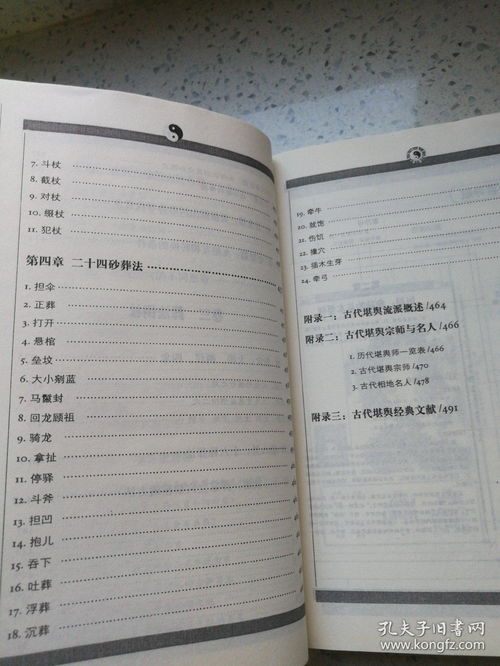 7. 斗杖
8. 截杖
9. 对杖
10. 缀杖
11. 犯杖
第四章 二十四砂葬法
1. 担伞
2. 正葬
3. 打开
4. 悬棺
5. 垒坟
6. 大小剜蓝
7. 马鬣封
8. 回龙顾祖
9. 骑龙
10. 拿扯
11. 停驿
12. 斗斧
13. 担凹
14. 抱儿
15. 吞下
16. 吐葬
17. 浮葬
18. 沉葬
19. 牵牛
20. 就饱
21. 伤饥
22. 撞穴
23. 插木生芽
24. 牵弓
附录一：古代堪舆流派概述/464
附录二：古代堪舆宗师与名人/466
1. 历代堪舆师一览表/466
2. 古代堪舆宗师/470
3. 古代相地名人/478
附录三：古代堪舆经典文献/491
孔夫子旧书网
www.kongfz.com